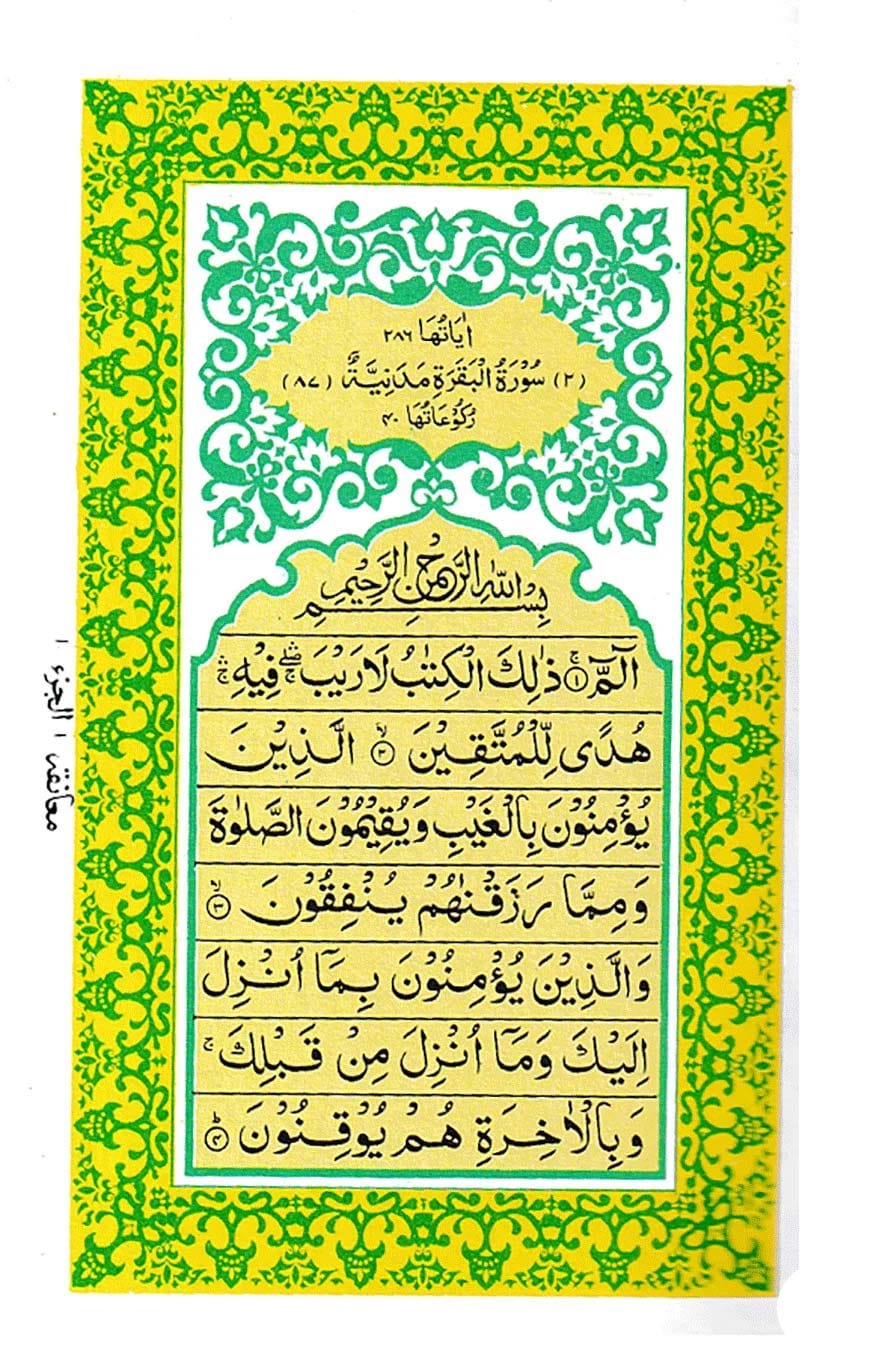 اٰيَاتُهَا ٢٨٦
(٢) سُوْرَةُ الْبَقَرَةِ مَدَنِيَّةٌ (٨٧)
رُكُوْعَاتُهَا ٤٠
بِسْمِ اللّٰهِ الرَّحْمٰنِ الرَّحِيْمِ
الٓمّٓ ۚ﴿١﴾ ذٰلِكَ الْكِتٰبُ لَا رَيْبَ ۛۚۖ فِيْهِ ۛۚ
هُدًى لِّلْمُتَّقِيْنَ ﴿٢﴾ۙ الَّذِيْنَ
يُؤْمِنُوْنَ بِالْغَيْبِ وَيُقِيْمُوْنَ الصَّلٰوةَ
وَمِمَّا رَزَقْنٰهُمْ يُنْفِقُوْنَ ﴿٣﴾ۙ
وَالَّذِيْنَ يُؤْمِنُوْنَ بِمَآ اُنْزِلَ
اِلَيْكَ وَمَآ اُنْزِلَ مِنْ قَبْلِكَ ۚ
وَبِالْاٰخِرَةِ هُمْ يُوْقِنُوْنَ ﴿٤﴾ؕ
معانقه ١ الجزء ١